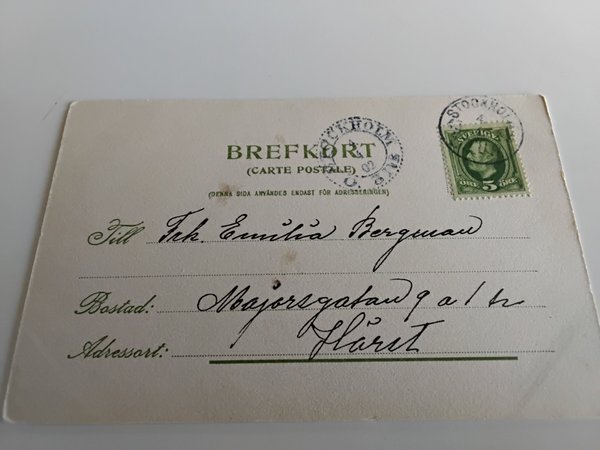 STOCKHOLM
4
SVERIGE
ÖRE 5 ÖRE
STOCKHOLM
02
BREFKORT
(CARTE POSTALE)
(DENNA SIDA ANVÄNDES ENDAST FÖR ADRESSERINGEN)
Till Frk. Emilia Bergman
Bostad: Majorsgatan 9 a 1 tr
Adressort: Härst